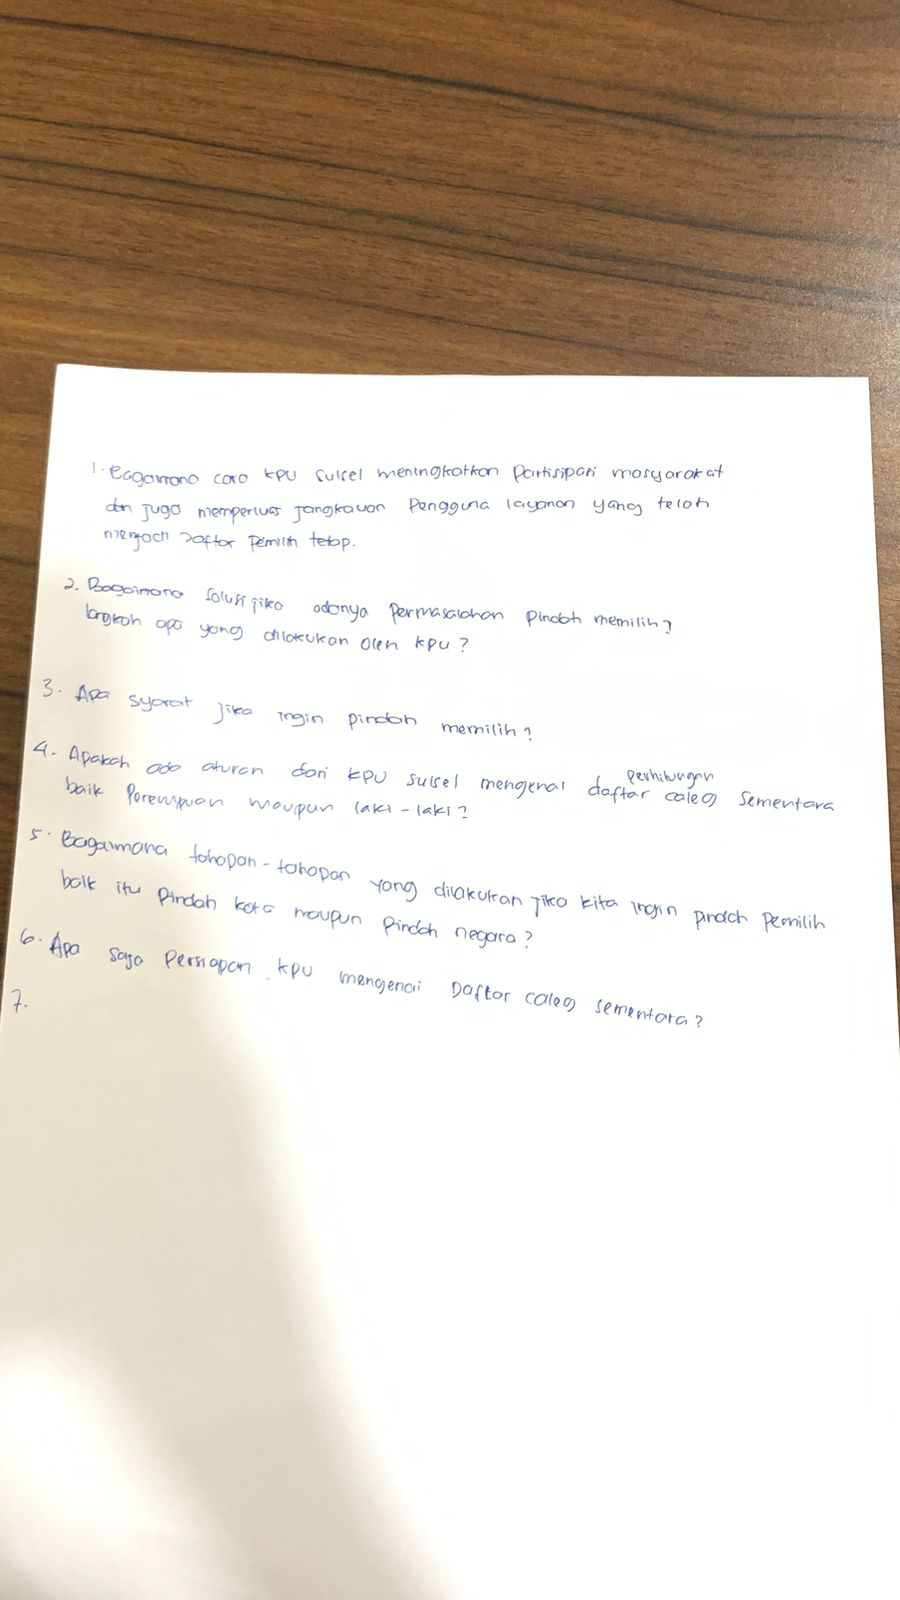 1. Bagaimana cara KPU Sulsel meningkatkan Partisipasi masyarakat
dan juga memperluas jangkauan Pengguna layanan yang telah
menjadi Daftar Pemilih tetap.
2. Bagaimana Solusi jika adanya Permasalahan Pindah memilih?
langkah apa yang dilakukan oleh KPU?
3. Apa syarat jika ingin pindah memilih?
4. Apakah ada aturan dari KPU Sulsel mengenai perhitungan daftar caleg Sementara
baik Perempuan maupun laki-laki?
5. Bagaimana tahapan-tahapan yang dilakukan jika kita ingin pindah Pemilih
baik itu Pindah kota maupun Pindah negara?
6. Apa saja Persiapan KPU mengenai Daftar caleg sementara?
7.